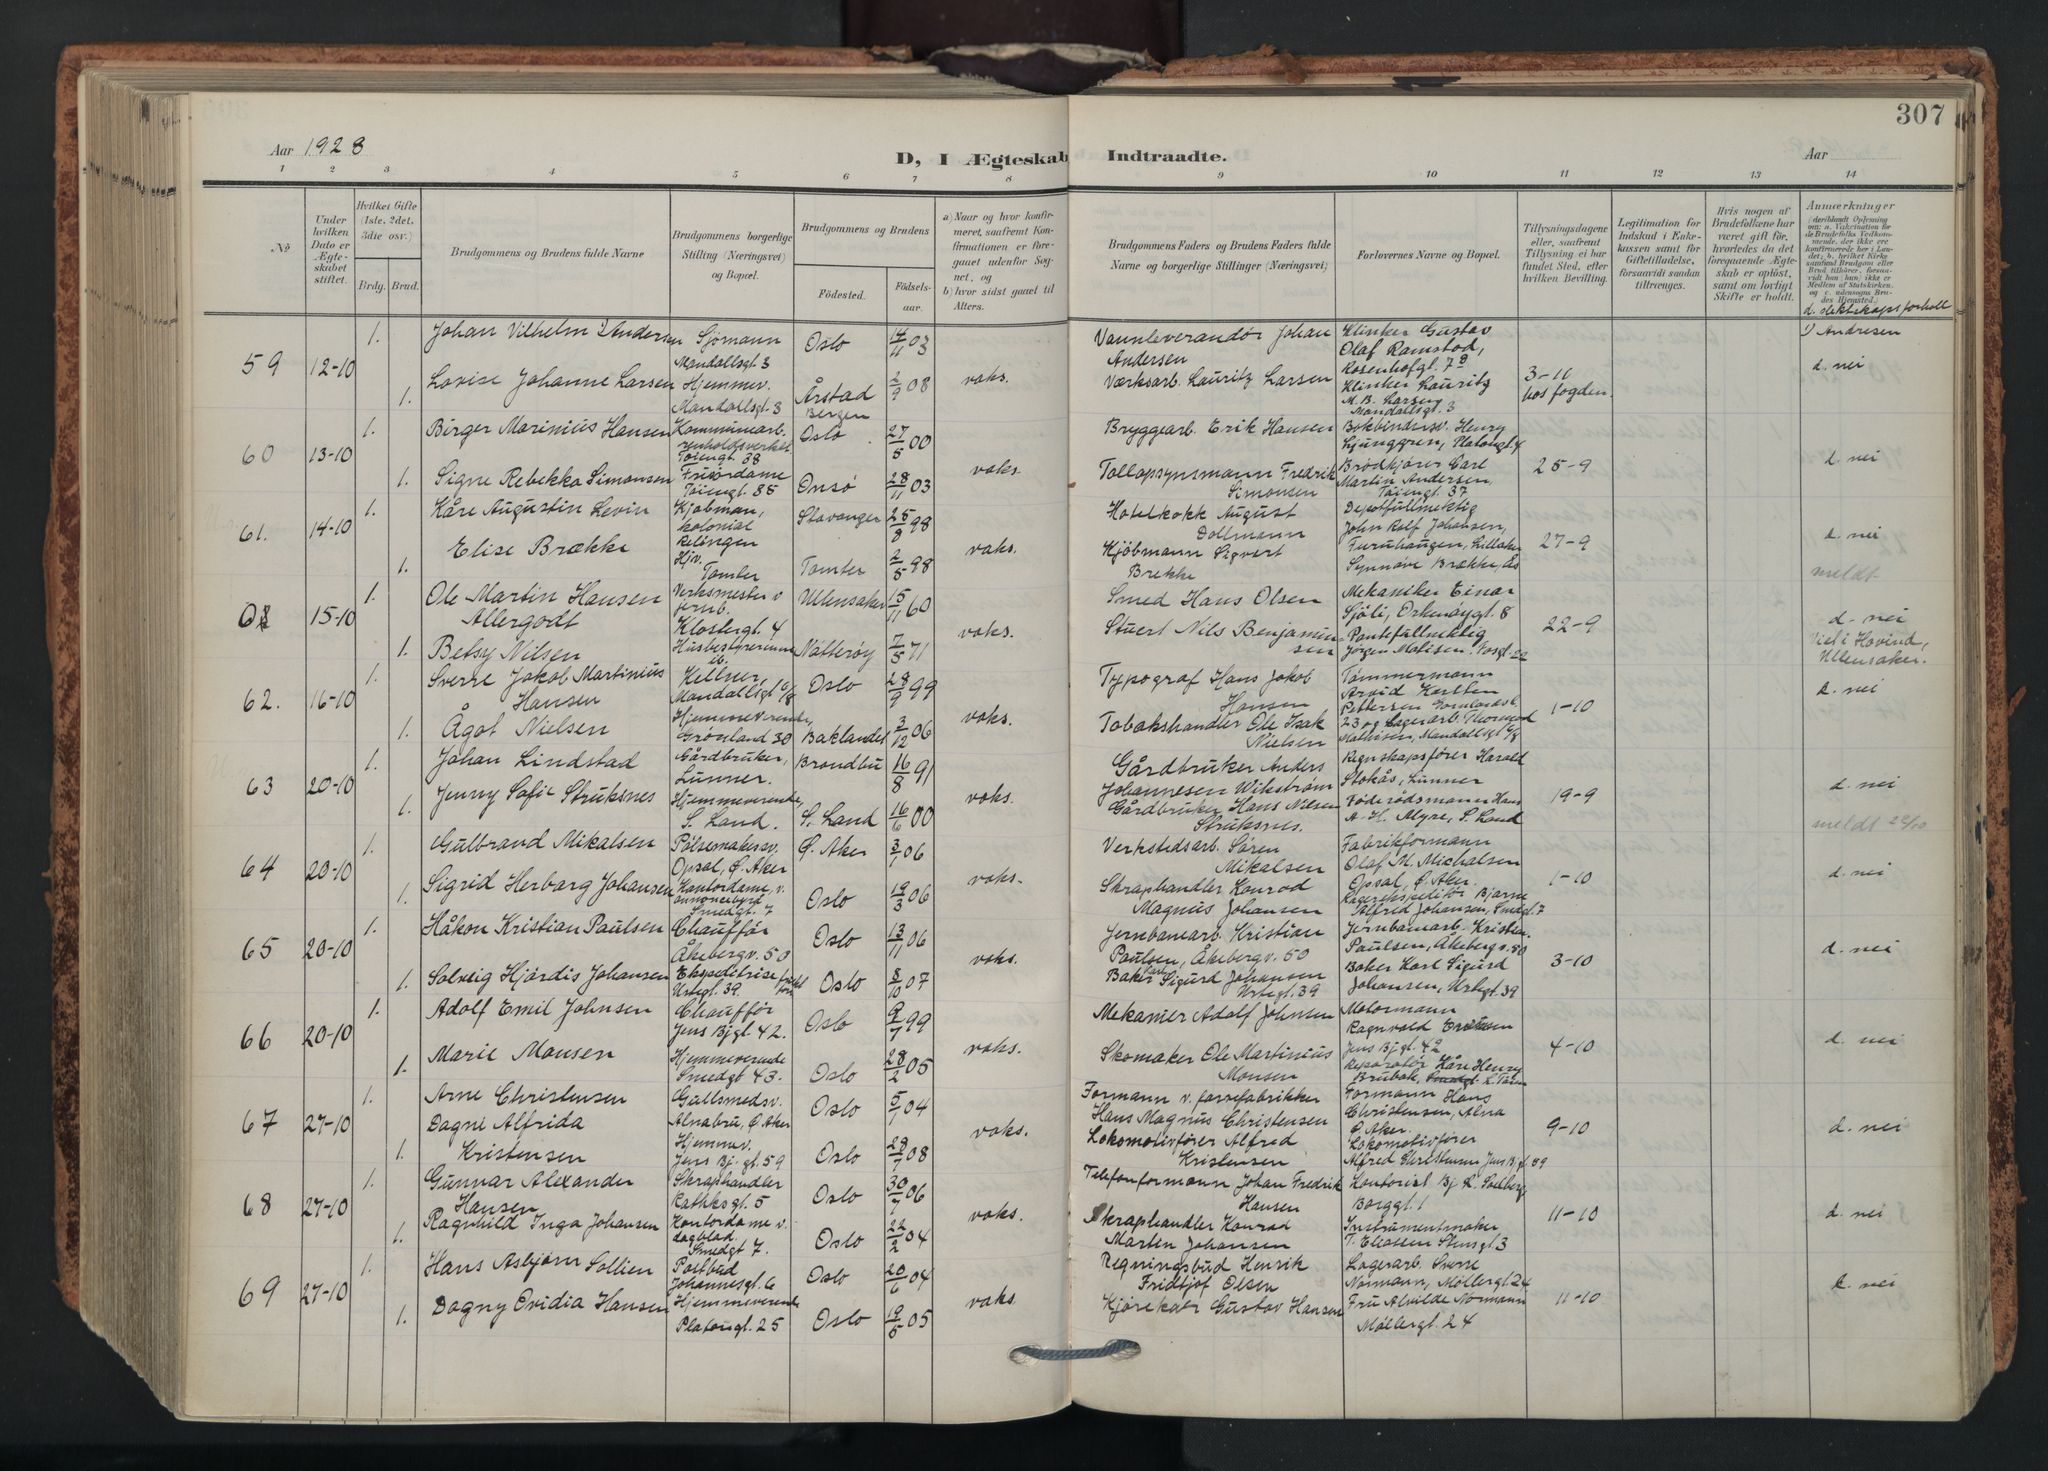 307
Aar 1928
D, I Ægteskab Indtraadte.
Aar
1 2 3 4 5 6 7 8 9 10 11 12 13 14
No
Under hvilken Dato er Ægteskabet stiftet.
Hvilket Gifte (1ste, 2det, 3die osv.)
Brdg. Brud.
Brudgommens og Brudens fulde Navne
Brudgommens borgerlige Stilling (Næringsvei) og Bopæl.
Brudgommens og Brudens
Fødested. Fødselsaar.
a) Naar og hvor konfirmeret, saafremt Konfirmationen er foregaaet udenfor Sognet, og
b) hvor sidst gaaet til Alters.
Brudgommens Faders og Brudens Faders fulde Navne og borgerlige Stillinger (Næringsvei)
Forlovernes Navne og Bopæl.
Tillysningsdagene eller, saafremt Tillysning ei har fundet Sted, efter hvilken Bevilling.
Legitimation for Indskud i Enkekassen samt for Giftetilladelse, forsaavidt saadan tiltrænges.
Hvis nogen af Brudefolkene har været gift før, hvorledes da det foregaaende Ægteskab er opløst, samt om lovligt Skifte er holdt.
Anmærkninger
d. slektskapsforhold
59 12-10
1. Johan Vilhelm 1) Andersen Sjømann Mandallsgt. 3 Oslo 14/11 03
1. Lovise Johanne Larsen Hjemmev. Mandallsgt. 3 Årstad Bergen 2/9 08
voks.
Vannleverandør Johan Andersen
Værksarb. Lauritz Larsen
Klinker Gustav Olaf Ramstad, Rosenhofgt. 7 B
Klinker Lauritz M. B. Larsen Mandallsgt. 3
3-10 hos fogden.
1) Andresen
d. nei
60 13-10
1. Birger Marinius Hansen Kommunearb. renholdsverket Tøiengt. 38 Oslo 27/5 00
1. Signe Rebekka Simonsen Frisørdame Tøiengt. 38 Onsø 28/11 03
voks.
Bryggearb. Erik Hansen
Tollopsynsmann Fredrik Simonsen
Bokbindersv. Henry Ljunggren, Platousgt. 4
Brødkjører Carl Martin Andersen, Tøiengt. 37
25-9
d. nei
61. 14-10
1. Kåre Augustin Levin Kjøbman, kolonial Relingen Stavanger 25/8 98
1. Elise Brække Hjv. Tomter Tomter 2/5 98
voks.
Hotelkokk August Dollmann
Kjøbmann Sigvert Brekke
Depotfullmektig John Rolf Johansen, Furuhaugen, Lilleaker
Synnøve Brække, Ås
27-9
d. nei
meldt
15-10
1. Ole Martin Hansen Allergodt Verksmester v jernb. Klostergt. 4 Ullensaker 15/11 60
1. Betsy Nilsen Husbestyrerinne ib. Nøtterøy 7/5 71
voks.
Smed Hans Olsen
Stuert Nils Benjaminsen
Mekaniker Einar Sjøli, Orknøygt. 8
Pantefullmektig Jørgen Matisen. Vosgt. 22
22-9
d. nei
Viet i Hovind, Ullensaker.
62. 16-10
1. Sverre Jakob Martinius Hansen Kellner, Mandallsgt 6/8 Oslo 28/9 99
1. Ågot Nielsen Hjemmeværende, Grønland 30 Baklandet 3/12 06
voks.
Typograf Hans Jakob Hansen
Tobakshandler Ole Isak Nielsen
Tømmermann Arvid Karlsen Pettersen
23 og Lagerarb. Thormod Mathisen, Mandallsgt 6/8
1-10
d. nei
63 20-10
1. Johan Lindstad Gårdbruker, Lunner. Brandbu 16/8 91
1. Jenny Sofie Struksnes Hjemmeværende, S. Land. S. Land 16/6 00
voks.
Gårdbruker Anders Johannesen Wikstrøm
Gårdbruker Hans Nilsen Struksnes.
Regnskapsfører Harald Stokås, Lunner
Føderådsmann Hans A. H. Alyre, S. Land
19-9
d. nei
meldt 22/10
64 20-10
1. Gulbrand Mikalsen Pølsemakersv. Opsal, Ø. Aker Ø. Aker 3/1 06
1. Sigrid Herborg Johansen Kontordame, v. annonsebyrå Smedgt. 7 Oslo 19/3 06
voks.
Verkstedsarb. Søren Mikalsen
Skraphandler Konrad Magnus Johansen
Fabrikformann Olaf M. Michalsen Opsal, Ø. Aker.
Lagerekspeditør Bjarne Alfred Johansen, Smedgt. 7
1-10
d. nei
65 20-10
1. Håkon Kristian Paulsen Chauffør Åkebergv. 50 Oslo 13/11 06
1. Solveig Hjørdis Johansen Ekspeditrise Urtegt. 39. Oslo 8/10 07
voks.
Jernbanearb. Kristian Paulsen, Åkebergv. 50
Baker Karl Sigurd Johansen Urtegt. 39
Jernbanearb. Kristian. Paulsen, Åkebergv. 50
Baker Karl Sigurd Johansen, Urtegt. 39
3-10
d. nei
66 20-10
1. Adolf Emil Johnsen Chauffør Jens Bjgt. 42. Oslo 9/7 99
1. Marie Monsen Hjemmeværende Smedgt 43. Oslo 28/2 05
voks.
Mekaniker Adolf Johnsen
Skomaker Ole Martinius Monsen
Motormann Ragnvald Eriksen Jens Bjgt. 42
Reparatør Kåre Henry Brubak,
4-10
d. nei
67 27-10
1. Arne Christensen Gullsmedsv. Alnabru, Ø. Aker Oslo 5/1 04
1. Dagne Alfrida Kristensen Hjemmev. Jens Bj. gt. 59 Oslo 28/7 08
voks.
Formann v. farvefabrikker Hans Magnus Christensen
Lokomotivfører Alfred Kristensen
Formann Hans Christensen, Alna Ø Aker.
Lokomotivfører Alfred Christensen Jens Bjgt. 59
9-10
d. nei
68 27-10
1. Gunnar Alexander Hansen Skraphandler Rathkesgt. 5 Oslo 30/7 06
1. Ragnhild Inga Johansen Kontordame v. dagblad. Smedgt 7. Oslo 22/2 04
voks.
Telefonformann Johan Fredrik Hansen
Skraphandler Konrad Marten Johansen
Kontorist Bj. R. Solberg Borggt. 1
Instrumentmaker T. Eliassen Stensgt. 3
11-10
d. nei
69 27-10
1. Hans Asbjørn Sollien Postbud Johannesgt. 6 Oslo 20/6 04
1. Dagny Ovidia Hansen Hjemmeværende Platousgt. 25 Oslo 19/5 05
voks.
Regningsbud Henrik Fridtjof Olsen
Kjørekar Gustav Hansen
Lagerarb. Sverre Normann, Møllergt. 24
Fru Alvilde Normann Møllergt. 24
11-10
d. nei